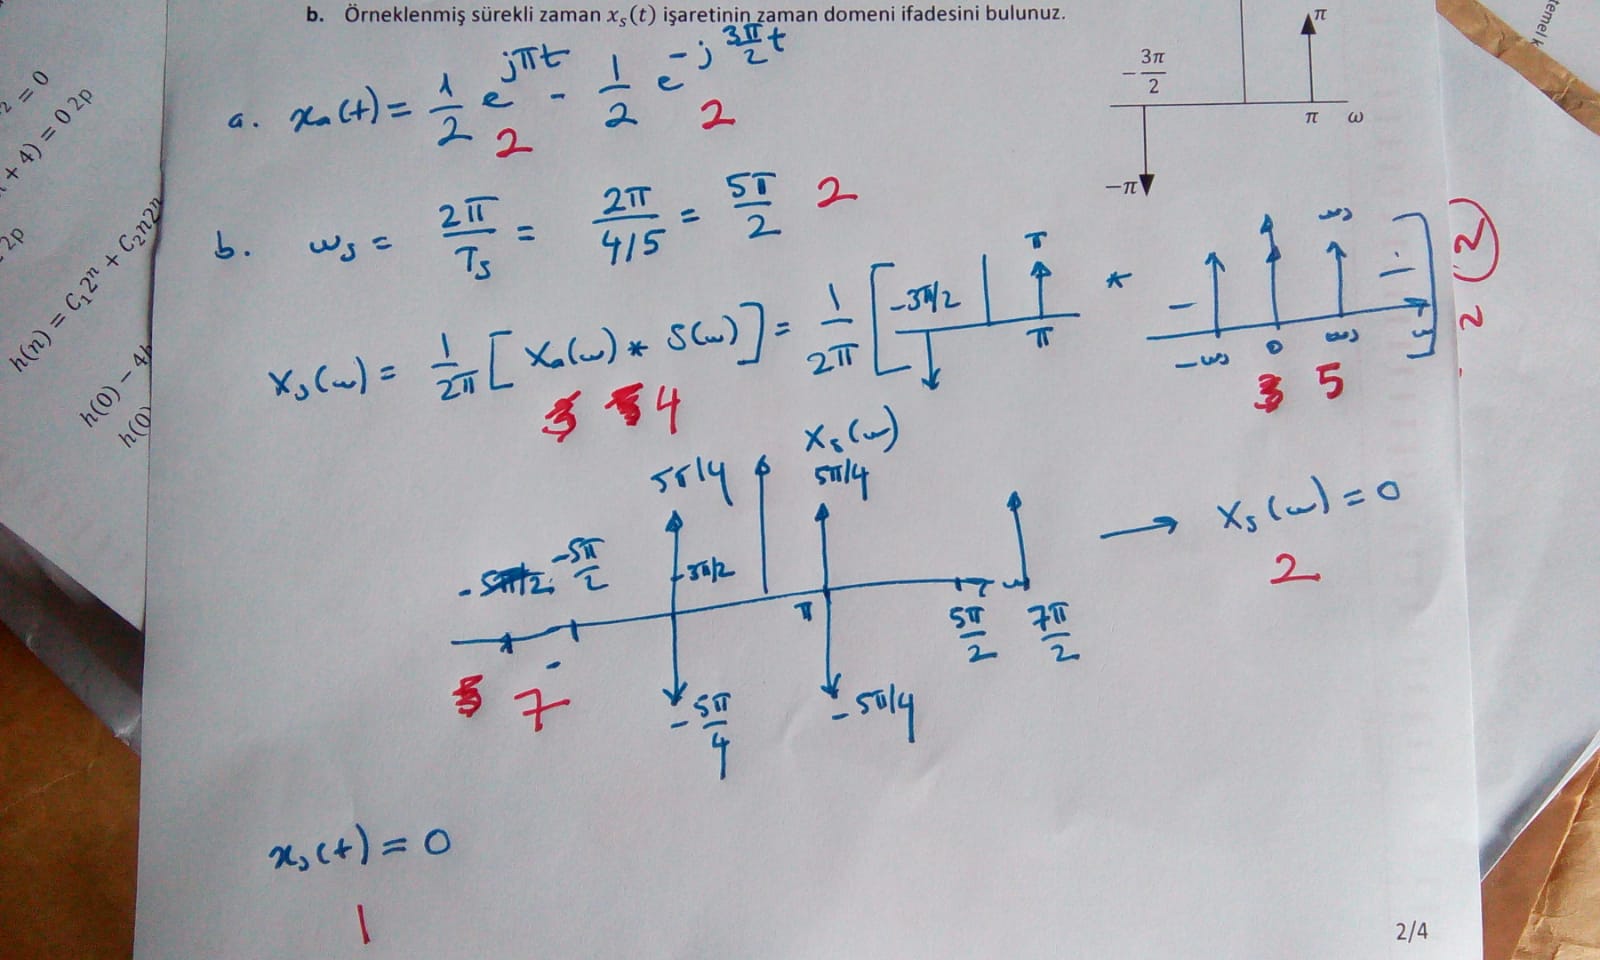 b. Örneklenmiş sürekli zaman xₛ(t) işaretinin zaman domeni ifadesini bulunuz.
π
-3π/2
π ω
-π
a. xₐ(t) = 1/2 e^(jπt) - 1/2 e^(-j 3π/2 t)
2 2
b. ωₛ = 2π/Tₛ = 2π/4/5 = 5π/2 2
Xₛ(ω) = 1/2π [Xₐ(ω) * S(ω)] = 1/2π [
-3π/2
π
π
*
ωₛ
-ωₛ 0 ωₛ
]
4
5
2
2
Xₛ(ω)
5π/4 5π/4
-5π/2
-3π/2
π
5π/2 7π/2
-5π/4
-5π/4
7
→ Xₛ(ω) = 0
2
xₛ(t) = 0
1
2/4
2 = 0
+ 4) = 0 2p
2p
h(n) = C₁2ⁿ + C₂n2ⁿ
h(0) - 4h
h(0)
temel k